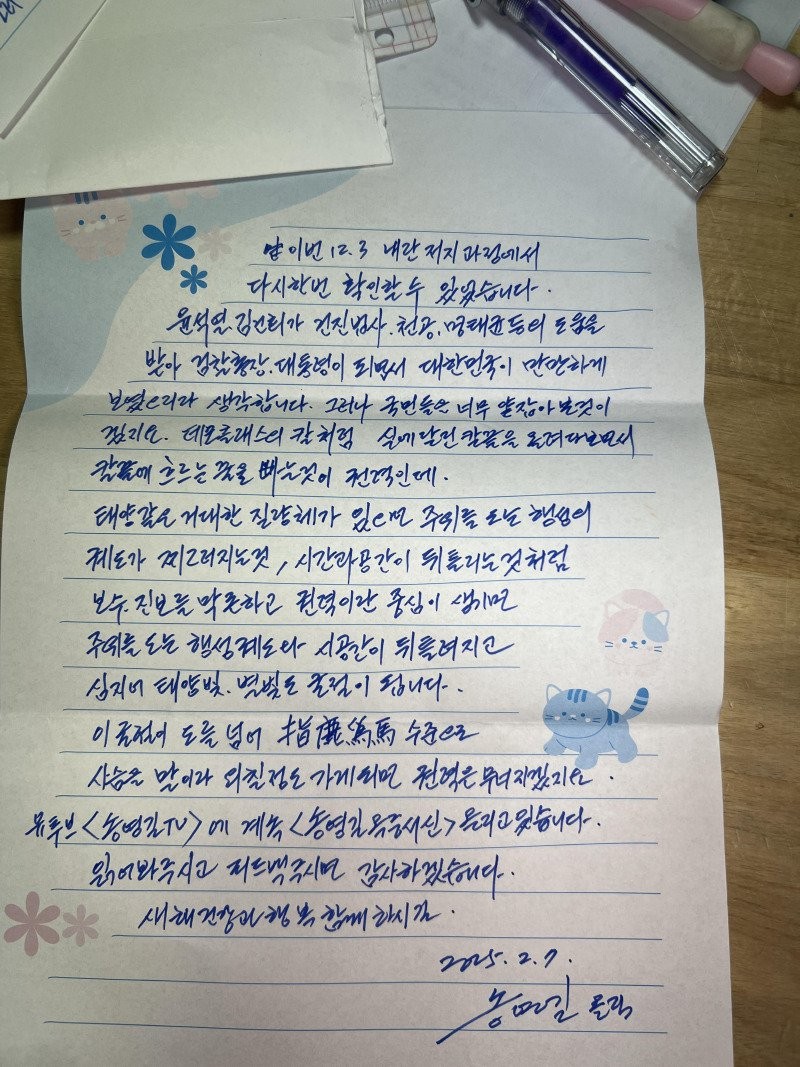 이번 12.3 내란 저지 과정에서
다시한번 확인할 수 있었습니다.
윤석열. 김건희가 건진법사. 천공. 명태균 등의 도움을
받아 검찰총장. 대통령이 되면서 대한민국이 만만하게
보였으리라 생각합니다. 그러나 국민들은 너무 얕잡아 본것이
겠지요. 데모클래스의 칼처럼 실에 달린 칼끝을 올려다보면서
칼끝에 흐르는 꿀을 빠는것이 권력인데.
태양같은 거대한 질량체가 있으면 주위를 도는 행성의
궤도가 찌그러지는것, 시간과 공간이 뒤틀리는것처럼
보수 진보를 막론하고 권력이란 중심이 생기면
주위를 도는 행성궤도와 시공간이 뒤틀려지고
심지어 태양빛. 별빛도 굴절이 됩니다.
이 굴절이 도를 넘어 指鹿爲馬 수준으로
사슴을 말이라 외칠정도 가게되면 권력은 무너지겠지요.
유투브 <송영길TV>에 계속 <송영길옥중서신> 올리고 있습니다.
읽어봐주시고 피드백주시면 감사하겠습니다.
새해 건강과 행복 함께 하시길.
2025. 2. 7.
송영길 올림